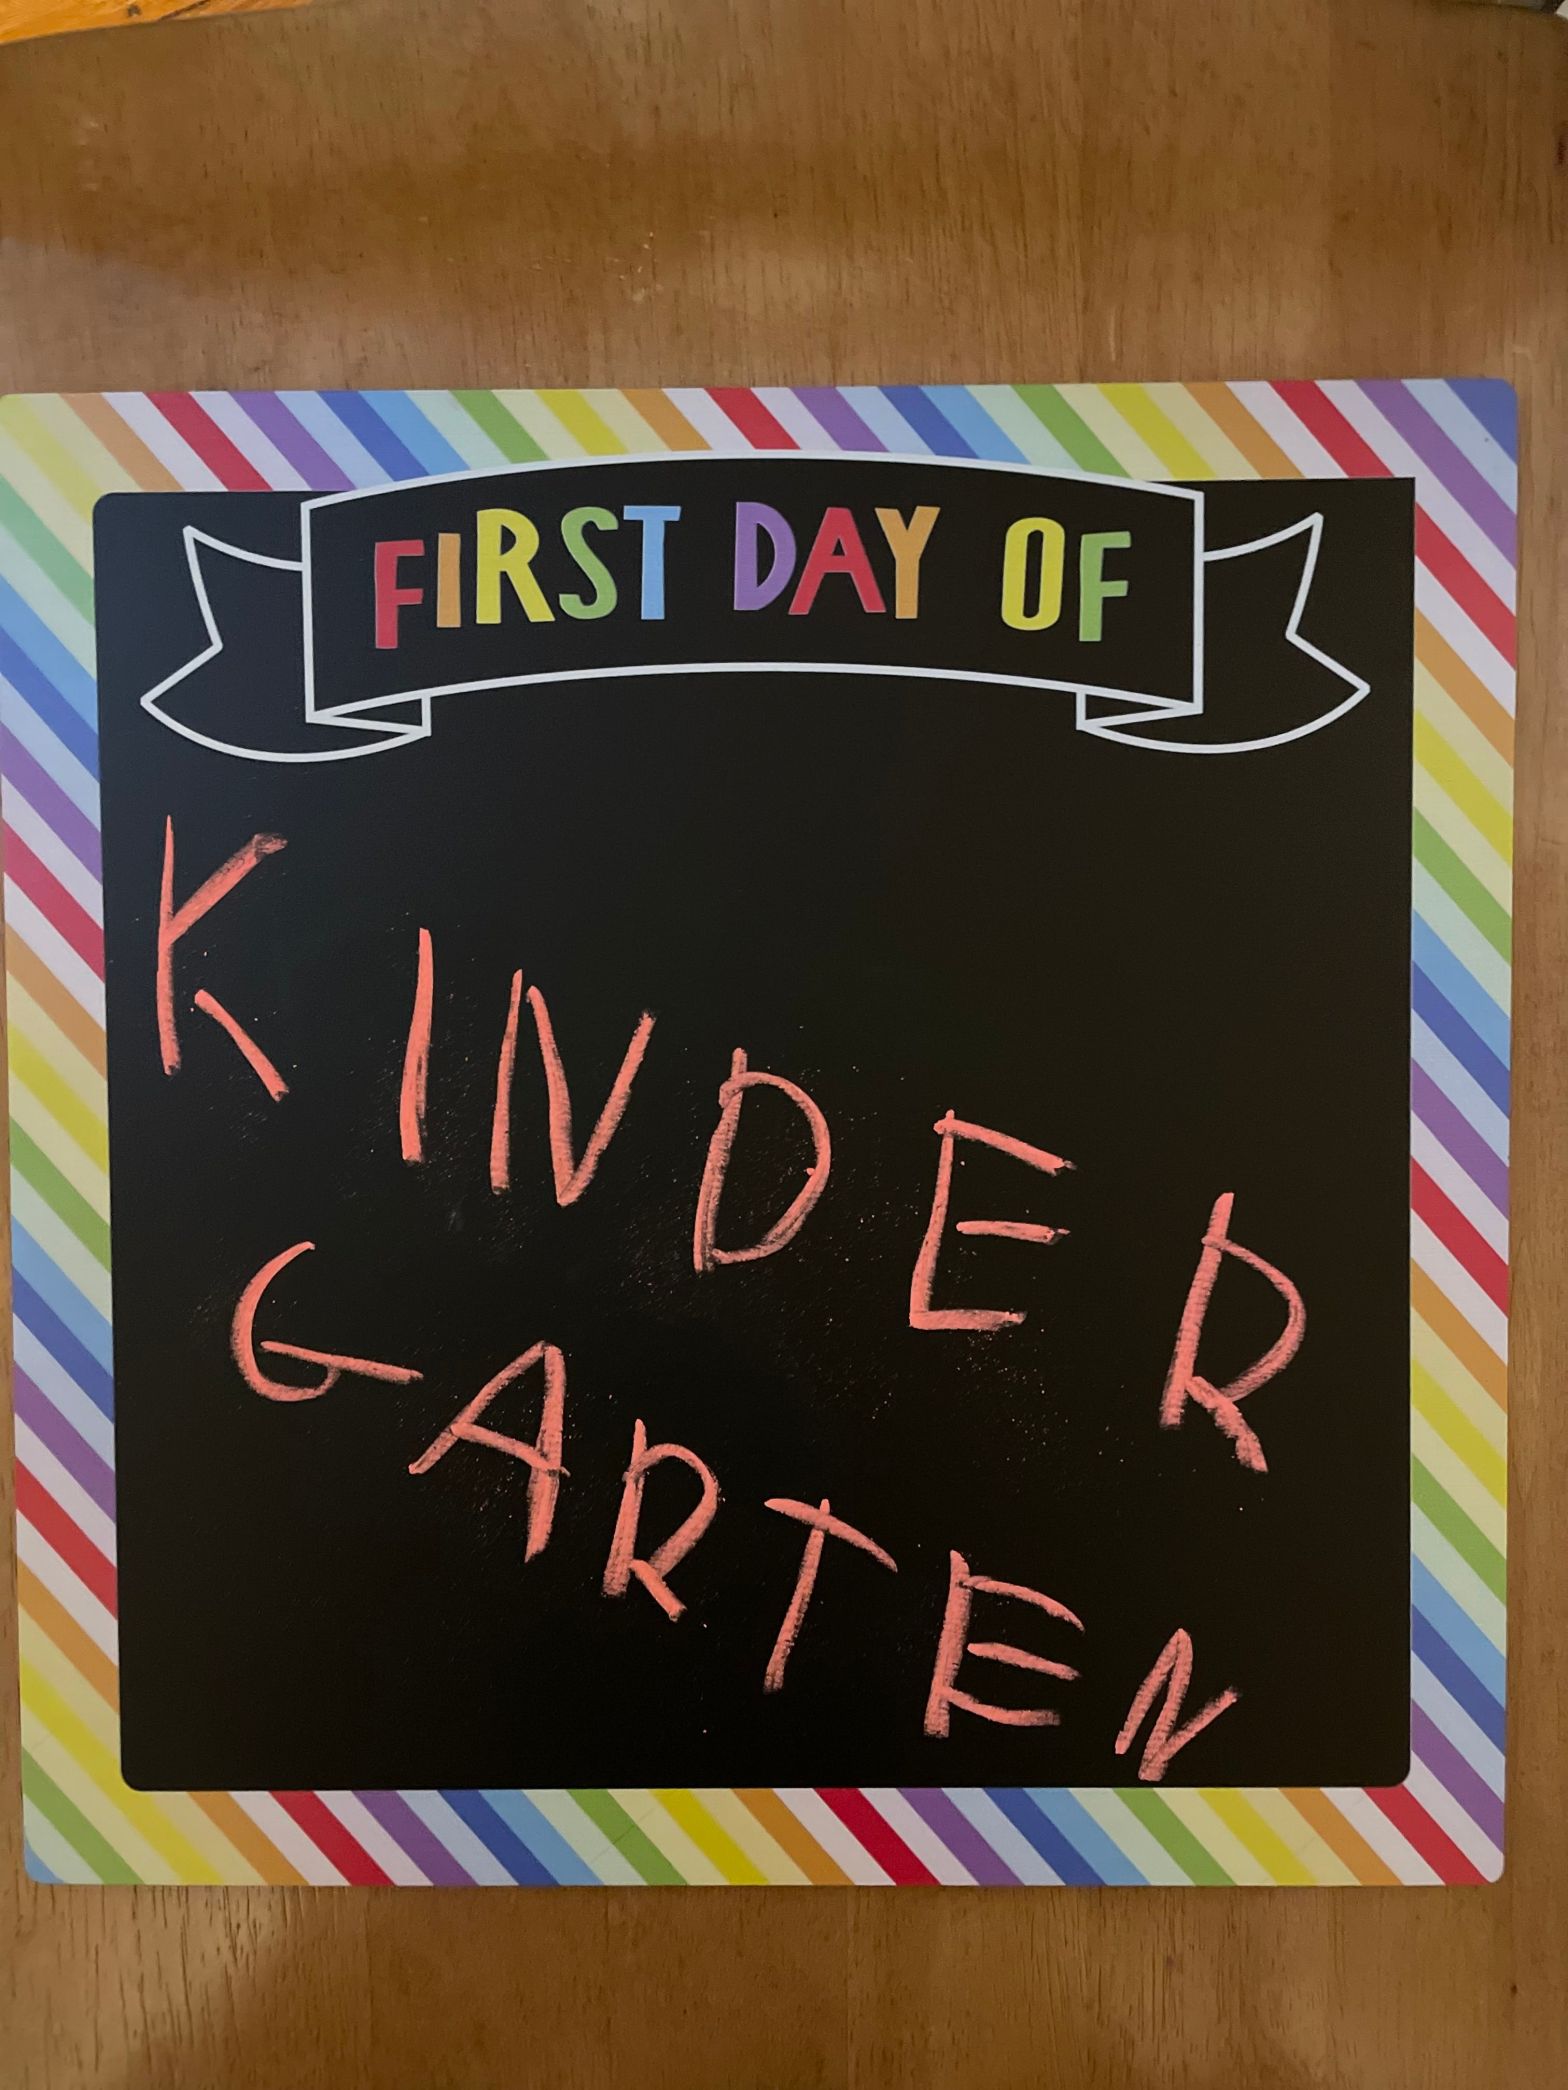 FIRST DAY OF
KINDER
GARTEN